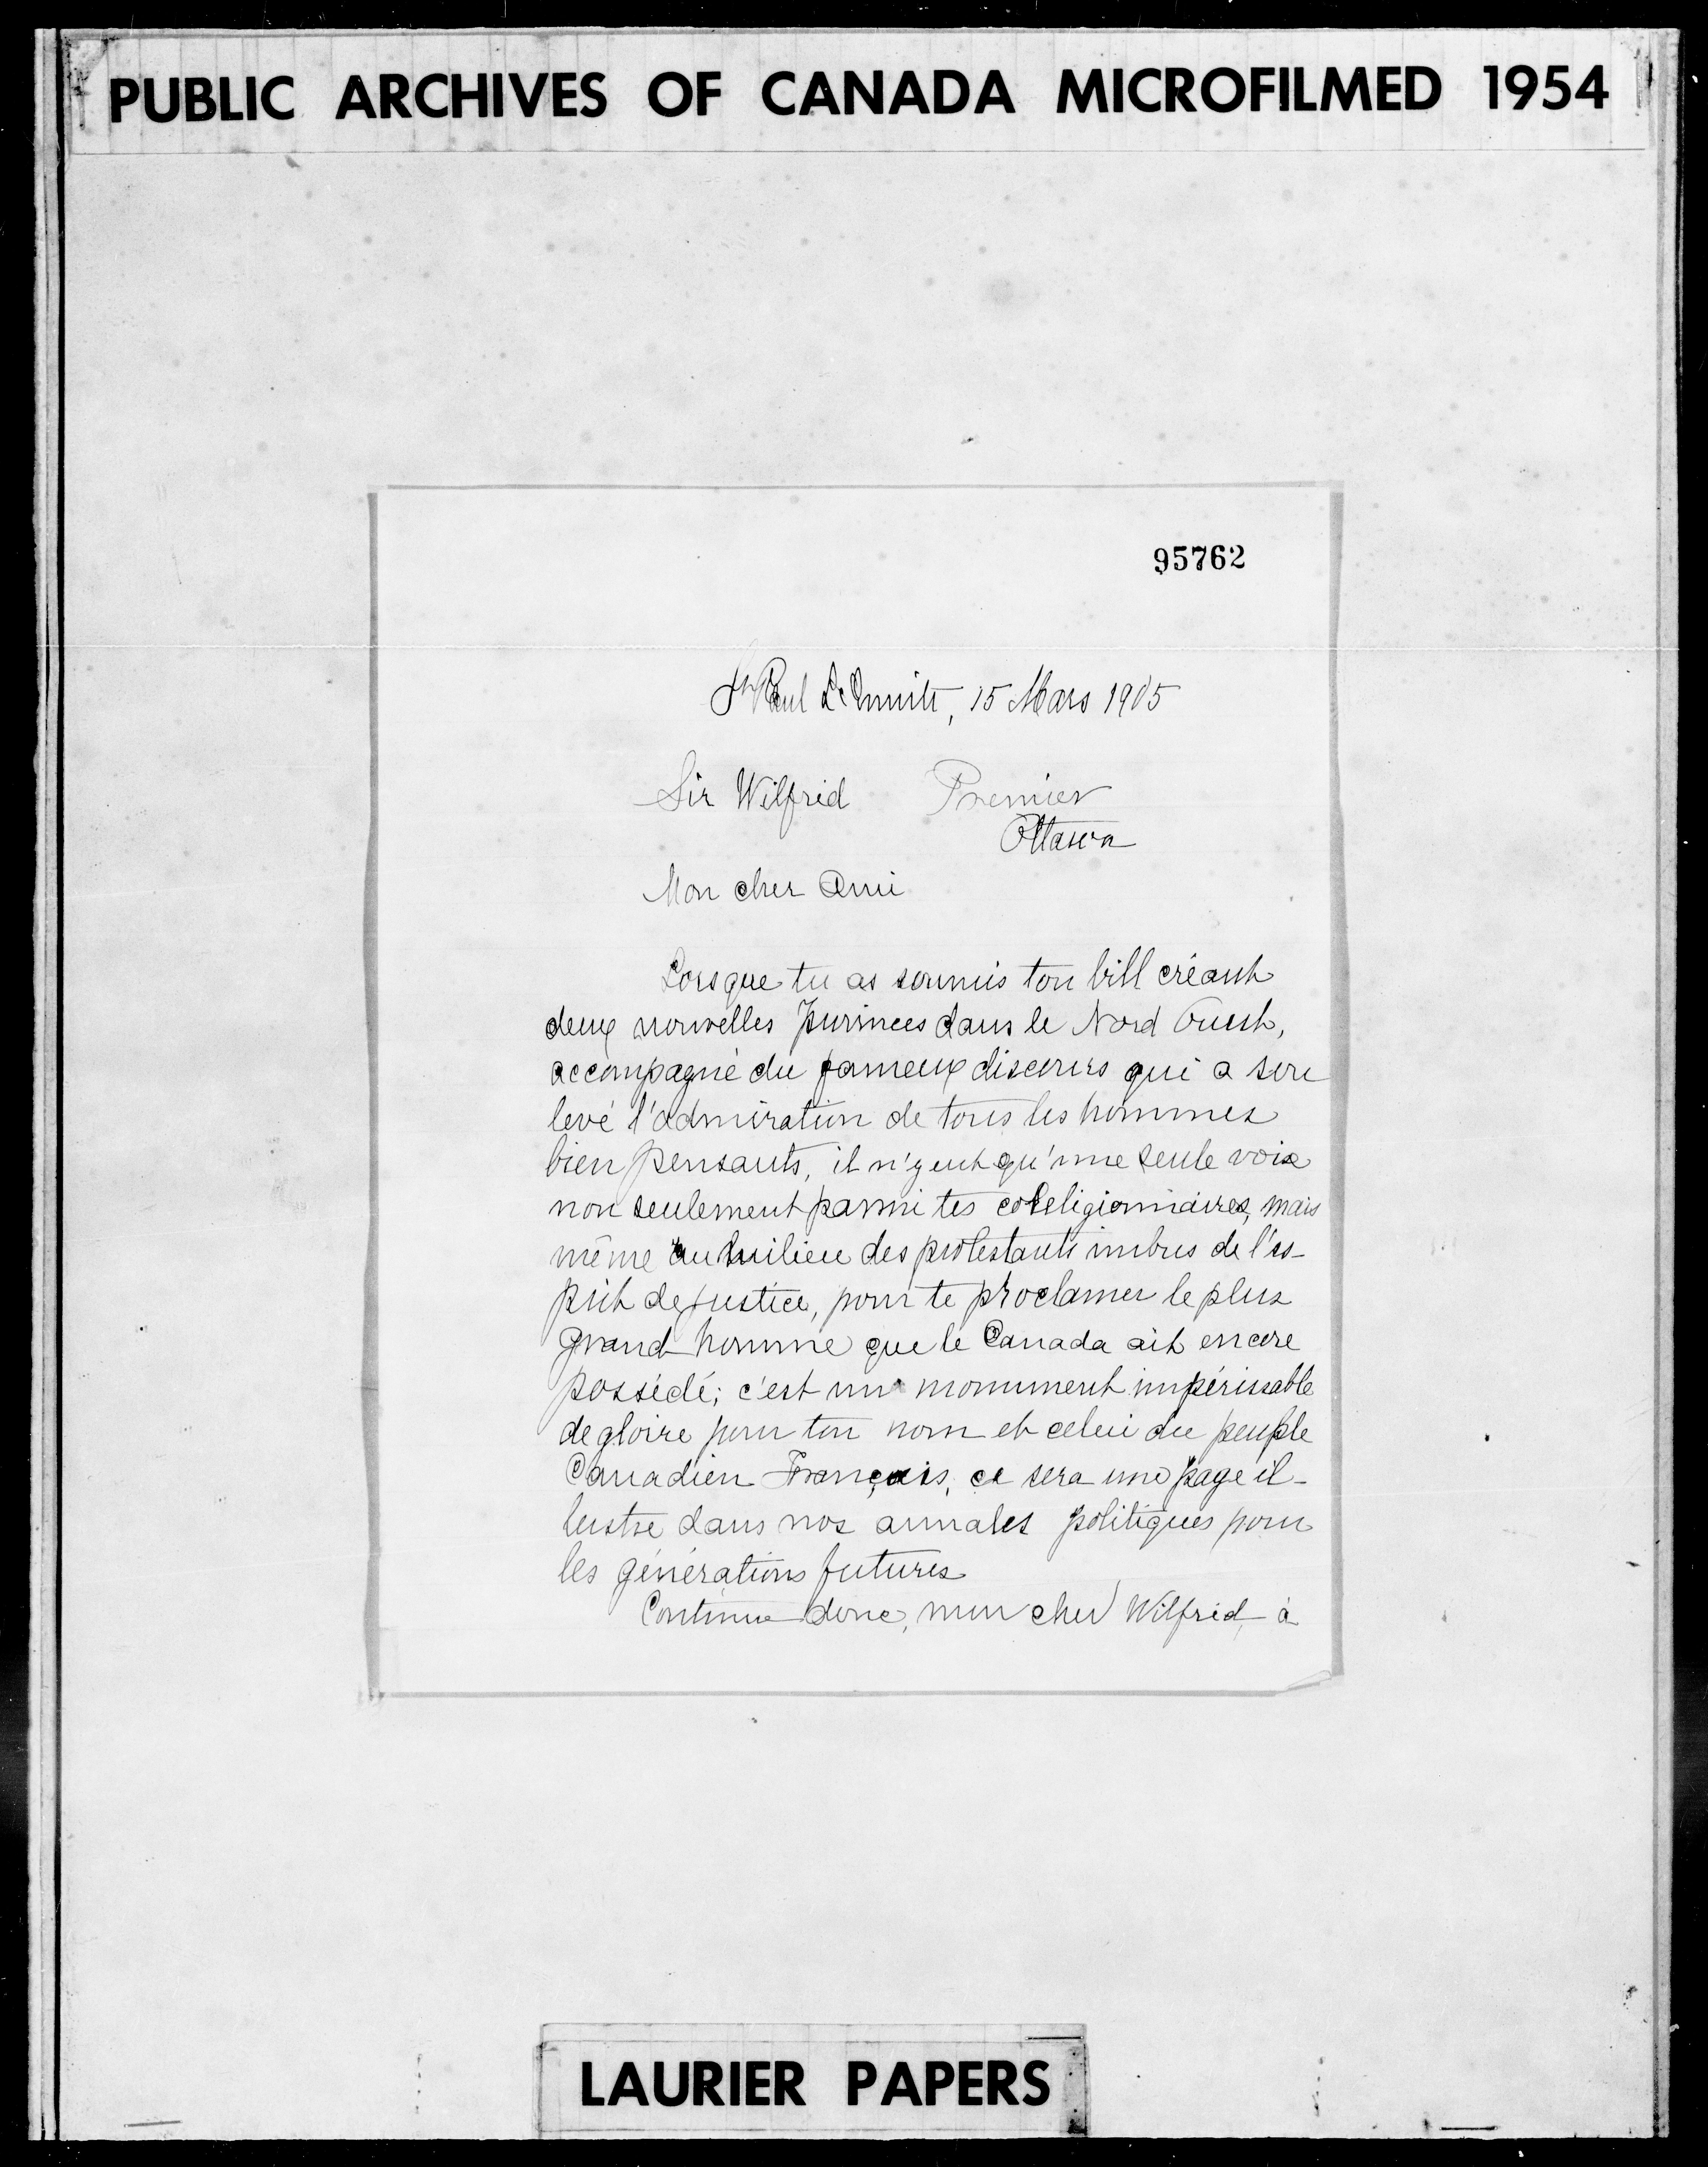 PUBLIC ARCHIVES OF CANADA MICROFILMED 1954
95762
St Paul L'Ermite, 15 Mars 1905
Sir Wilfrid Premier
Ottawa
Mon cher Ami
Lorsque tu as soumis ton bill créant
deux nouvelles provinces dans le Nord Ouest,
accompagné du fameux discours qui a sou
levé l'admiration de tous les hommes
bien pensants, il n'y eut qu'une seule voix
non seulement parmi tes coreligionnaires, mais
même au milieu des protestants imbus de l'es-
prit de justice, pour te proclamer le plus
grand homme que le Canada ait encore
possédé; c'est un monument impérissable
de gloire pour ton nom et celui du peuple
Canadien Français, ce sera une page il-
lustre dans nos annales politiques pour
les générations futures
Continue donc, mon cher Wilfrid, à
LAURIER PAPERS